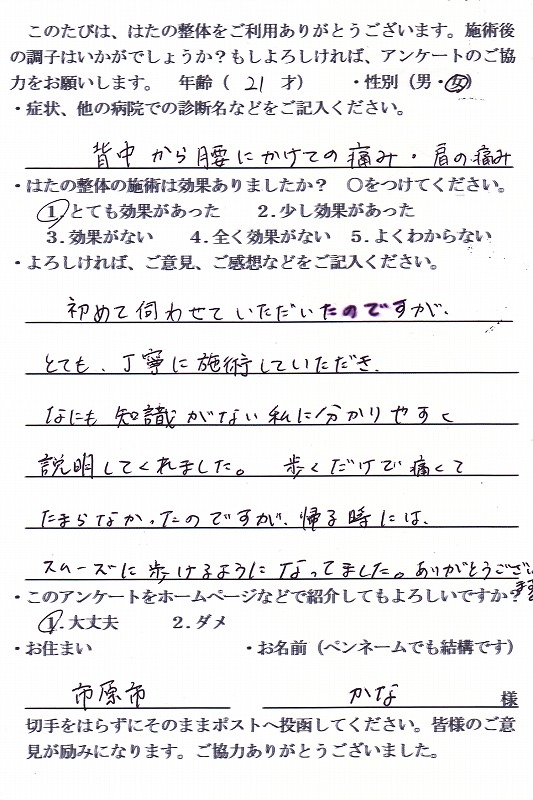 このたびは、はたの整体をご利用ありがとうございます。施術後
の調子はいかがでしょうか？もしよろしければ、アンケートのご協
力をお願いします。　年齢（ 21 才）　・性別（男・女）
・症状、他の病院での診断名などをご記入ください。
背中から腰にかけての痛み・肩の痛み
・はたの整体の施術は効果ありましたか？　〇をつけてください。
1.とても効果があった　2.少し効果があった
3.効果がない　4.全く効果がない　5.よくわからない
・よろしければ、ご意見、ご感想などをご記入ください。
初めて伺わせていただいたのですが、
とても、丁寧に施術していただき、
なにも知識がない私に分かりやすく
説明してくれました。　歩くだけで痛くて
たまらなかったのですが、帰る時には、
スムーズに歩けるようになってました。ありがとうござい
ます
・このアンケートをホームページなどで紹介してもよろしいですか？
1.大丈夫　2.ダメ
・お住まい　・お名前（ペンネームでも結構です）
市原市　かな　様
切手をはらずにそのままポストへ投函してください。皆様のご意
見が励みになります。ご協力ありがとうございました。